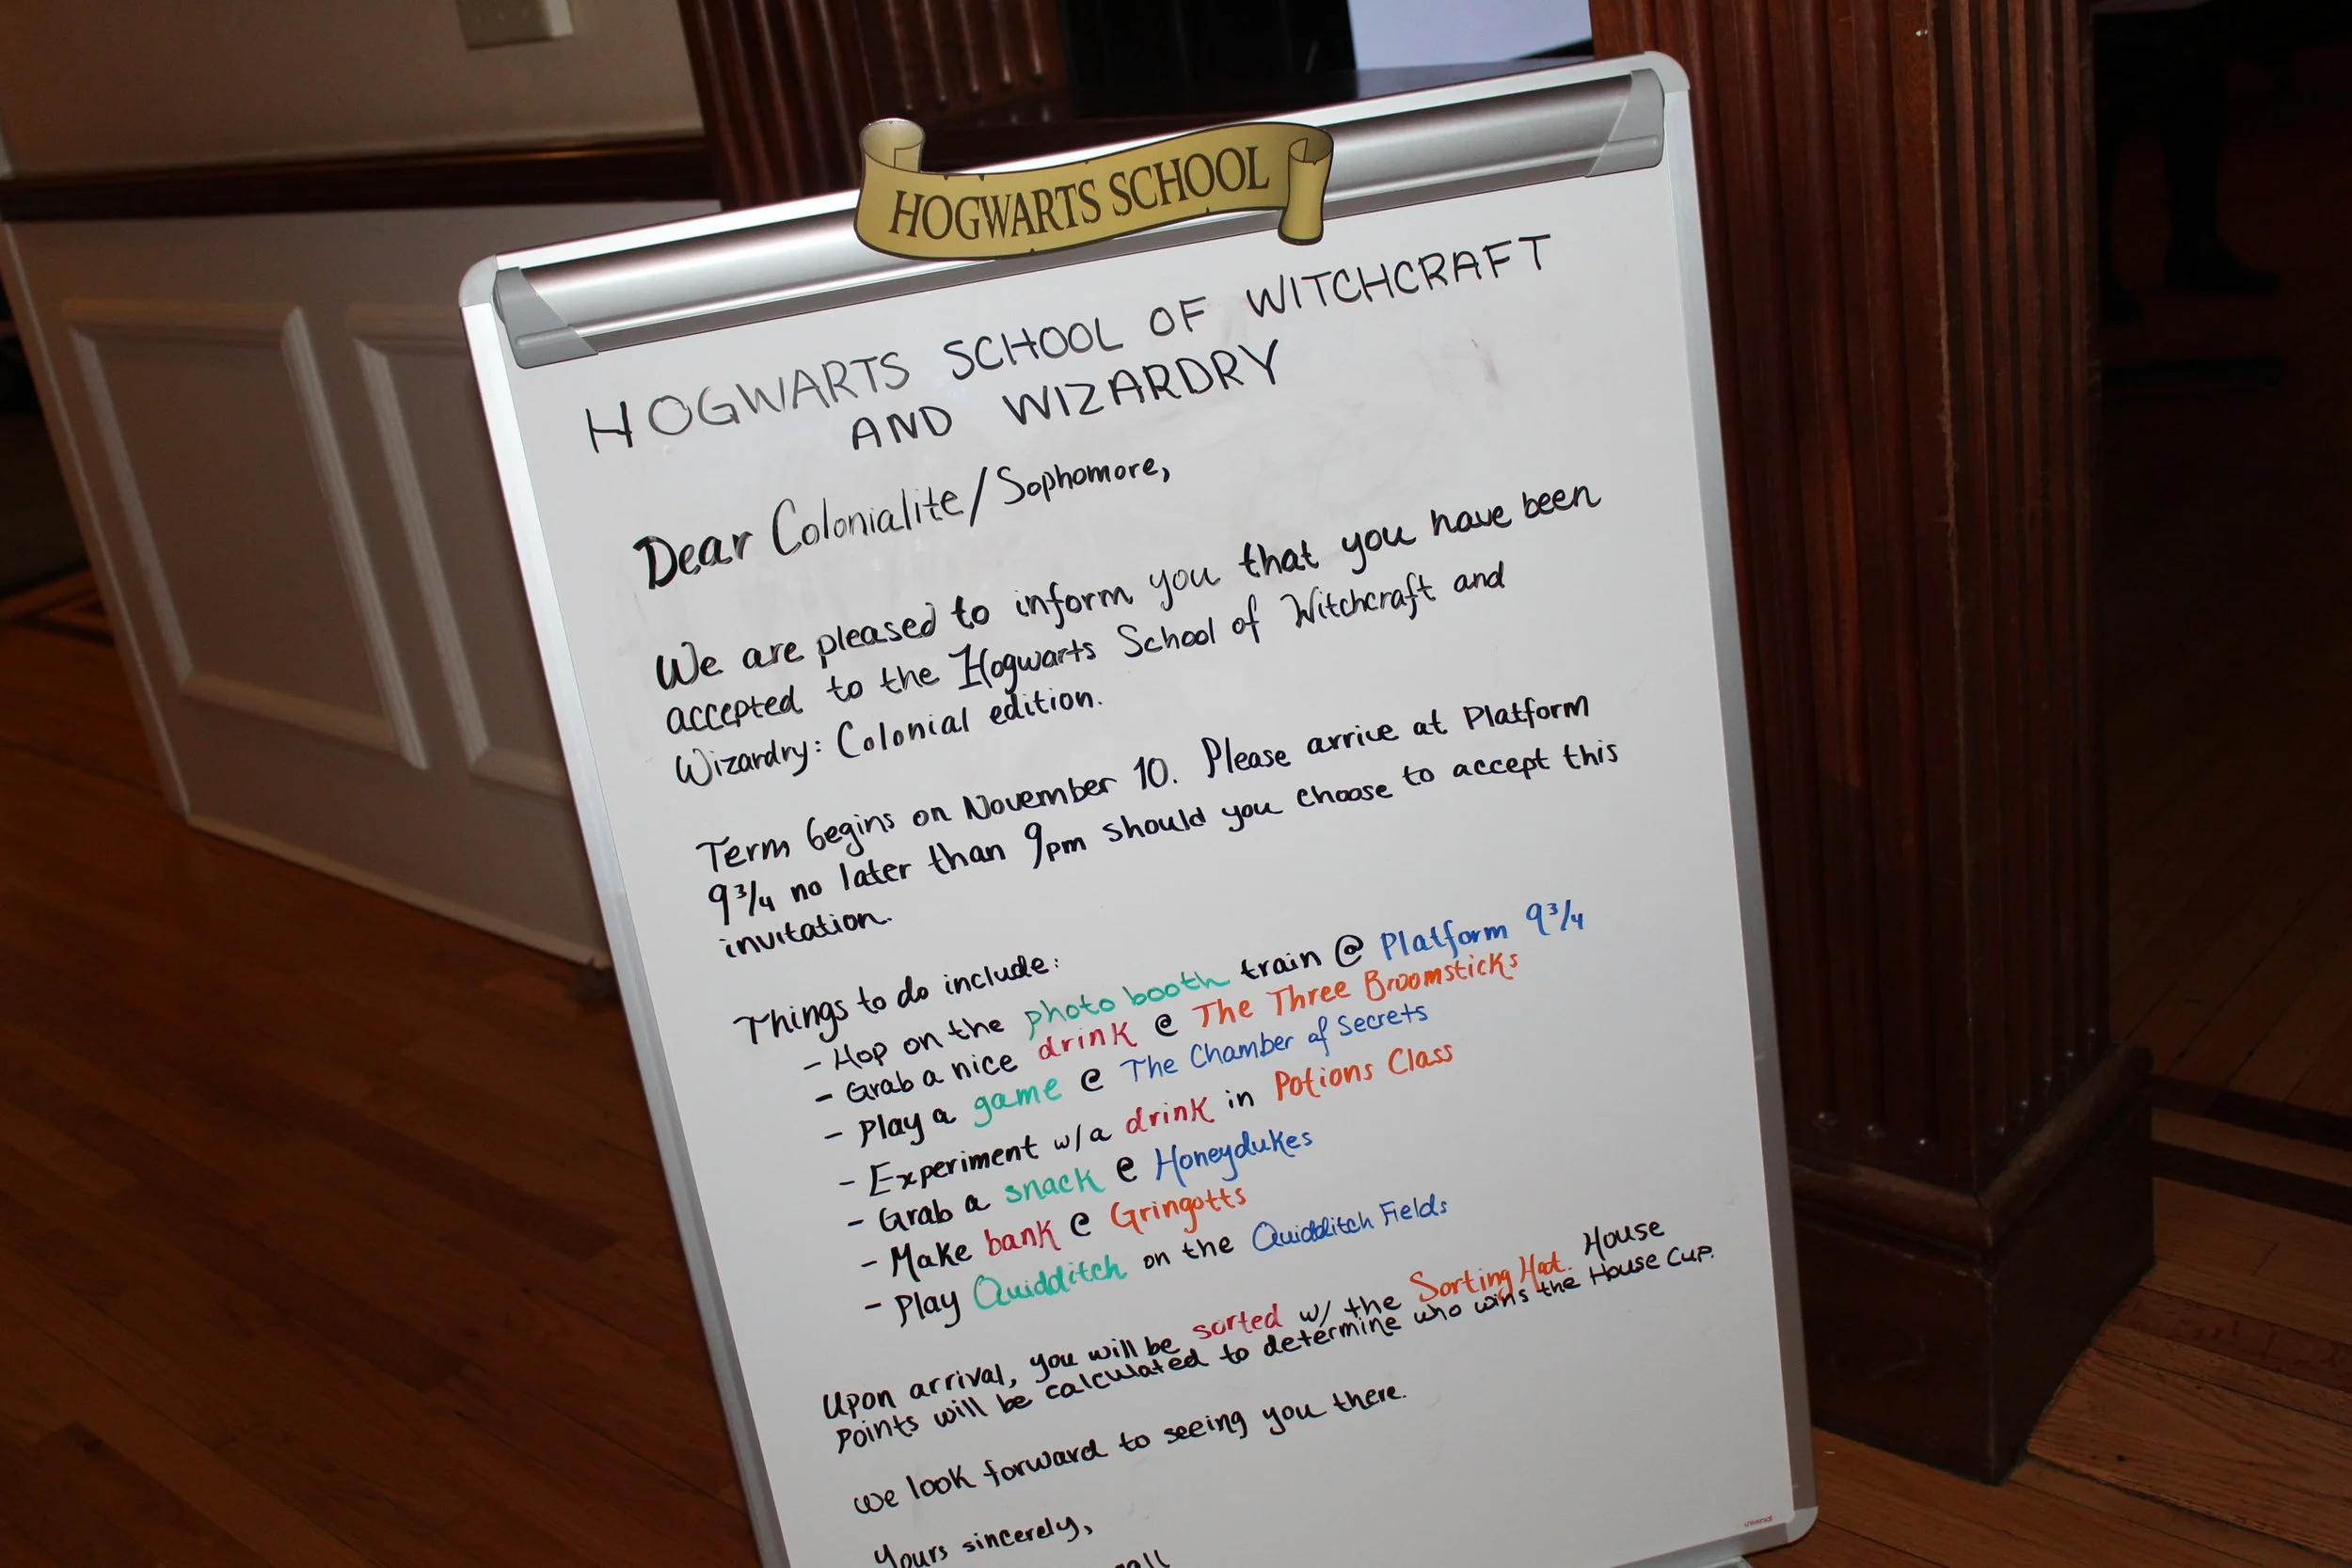 HOGWARTS SCHOOL
HOGWARTS SCHOOL OF WITCHCRAFT
AND WIZARDRY
Dear Colonialite/Sophomore,
We are pleased to inform you that you have been
accepted to the Hogwarts School of Witchcraft and
Wizardry: Colonial edition.
Term begins on November 10. Please arrive at Platform
9 3/4 no later than 9pm should you choose to accept this
invitation.
Things to do include:
- Hop on the photo booth train @ Platform 9 3/4
- Grab a nice drink @ The Three Broomsticks
- Play a game @ The Chamber of Secrets
- Experiment w/a drink in Potions Class
- Grab a snack @ Honeydukes
- Make bank @ Gringotts
- Play Quidditch on the Quidditch Fields
Upon arrival, you will be sorted w/ the Sorting Hat. House
points will be calculated to determine who wins the House Cup.
We look forward to seeing you there.
Yours sincerely,
universal